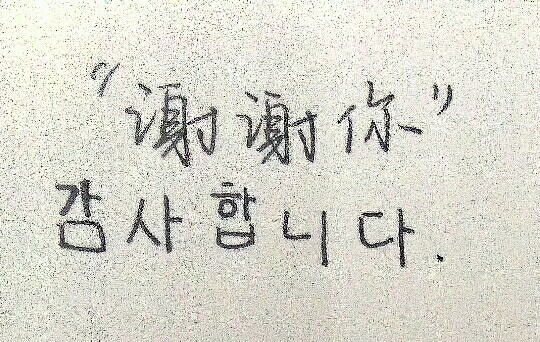 “谢谢你”
감사합니다.